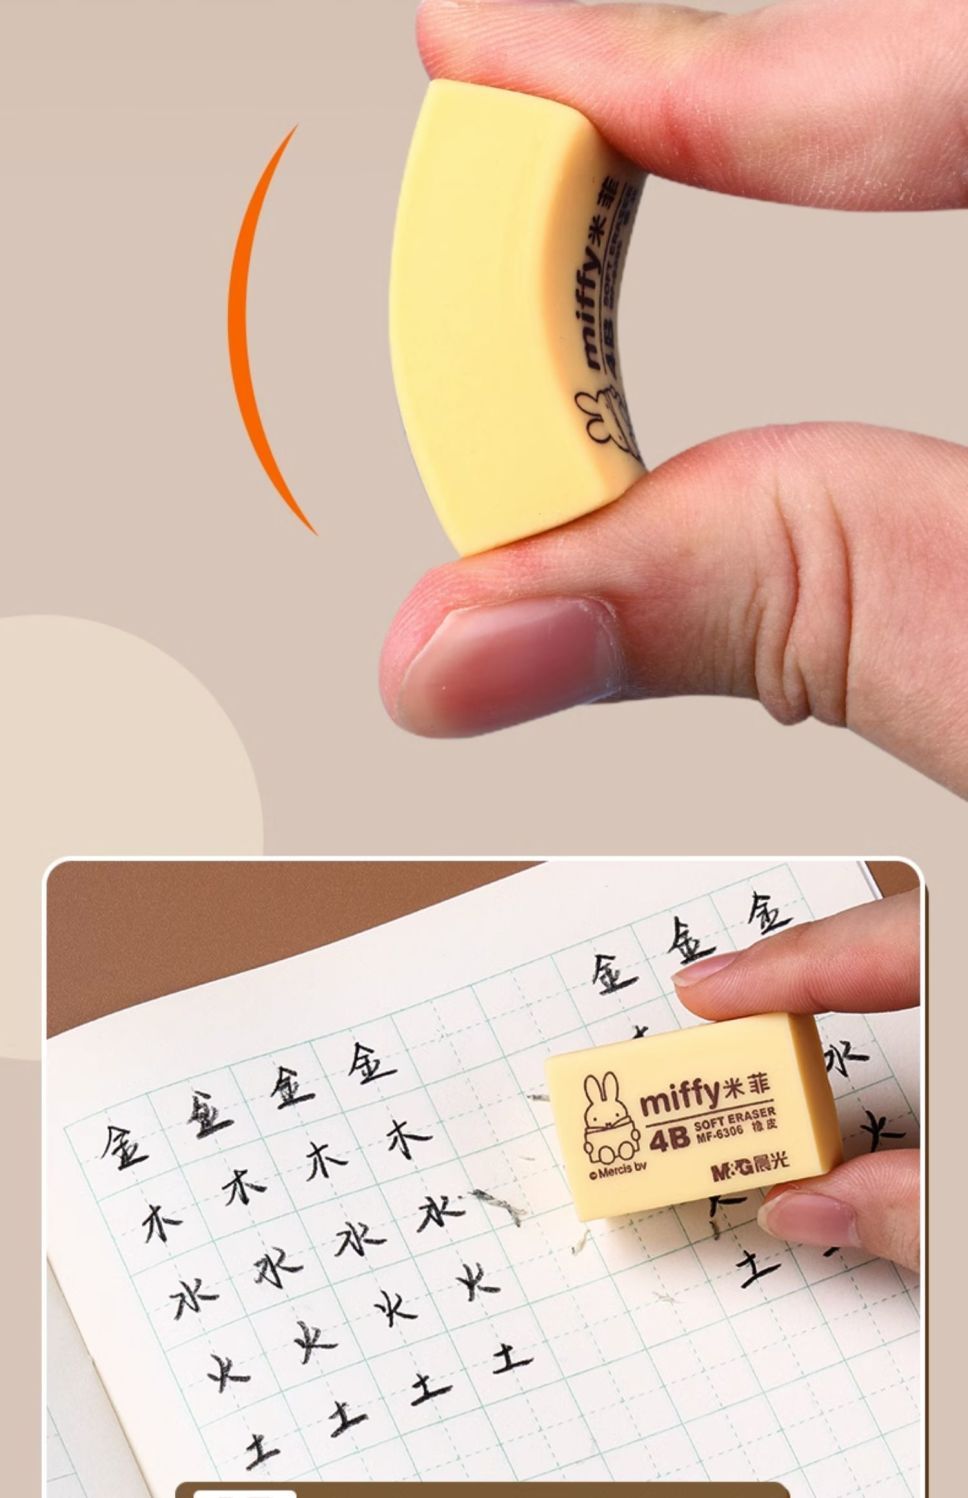 miffy米菲
4B
SOFT ERASER
金 金 金
金 金 金 金
木 木 木 木
水 水 水 水
火 火 火 火
土 土 土 土
水
火
土
miffy米菲
4B SOFT ERASER
MF-6306 橡皮
©Mercis bv
M&G晨光